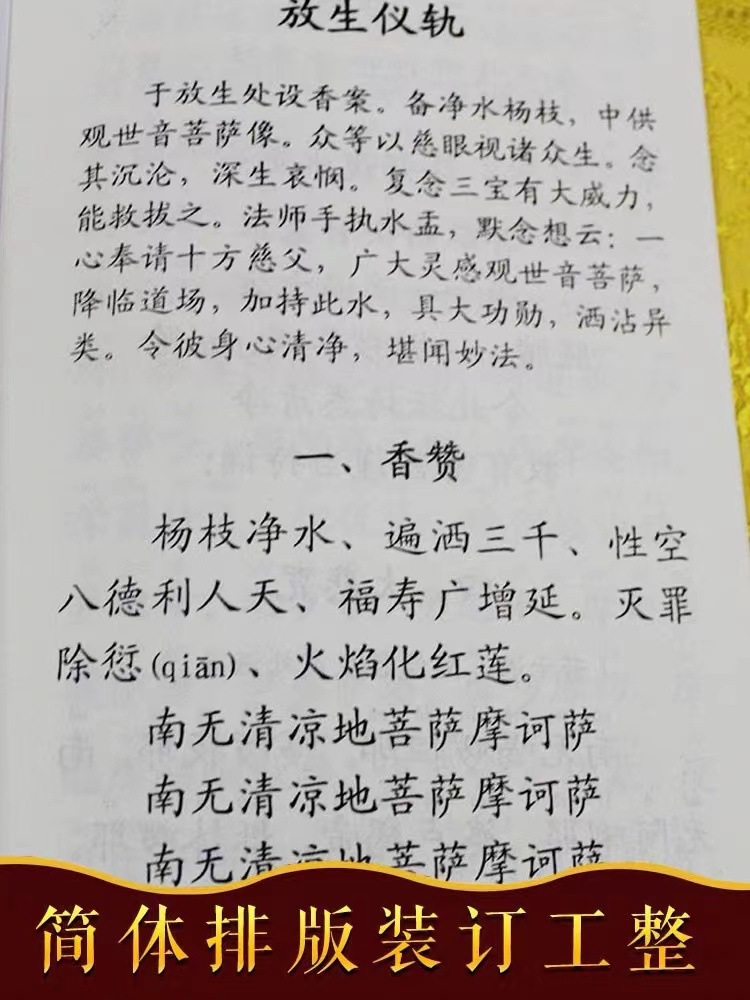 放生仪轨
于放生处设香案。备净水杨枝，中供
观世音菩萨像。众等以慈眼视诸众生。念
其沉沦，深生哀悯。复念三宝有大威力，
能救拔之。法师手执水盂，默念想云：一
心奉请十方慈父，广大灵感观世音菩萨，
降临道场，加持此水，具大功勋，洒沾异
类。令彼身心清净，堪闻妙法。
一、香赞
杨枝净水、遍洒三千、性空
八德利人天、福寿广增延。灭罪
除愆(qiān)、火焰化红莲。
南无清凉地菩萨摩诃萨
南无清凉地菩萨摩诃萨
南无清凉地菩萨摩诃萨
简体排版装订工整